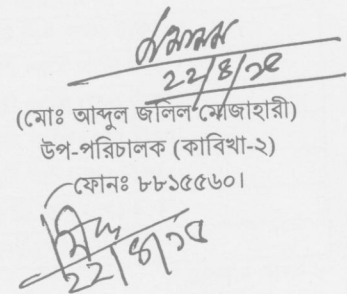 ২২/৪/১৫
(মোঃ আব্দুল জলিল মোজাহারী)
উপ-পরিচালক (কাবিখা-২)
ফোনঃ ৮৮১৫৫৬০।
২২/৪/১৫